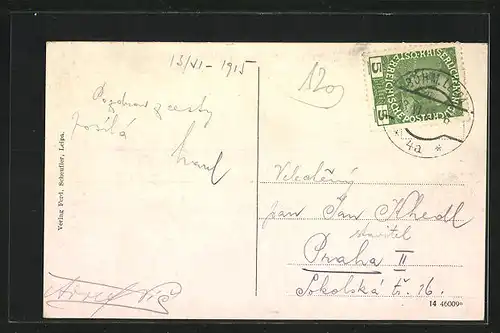 13/VI - 1915
120
Pozdrav z cesty
posílá
Verlag Ferd. Scheufler, Leipa.
5
5
KAISERLICHE KÖNIGLICHE
ÖSTERREICHISCHE POST
BÖHM.
4a *
Velectěný
pan Jan Khedl
stavitel
Praha II
Sokolská tř. 16.
14 46009